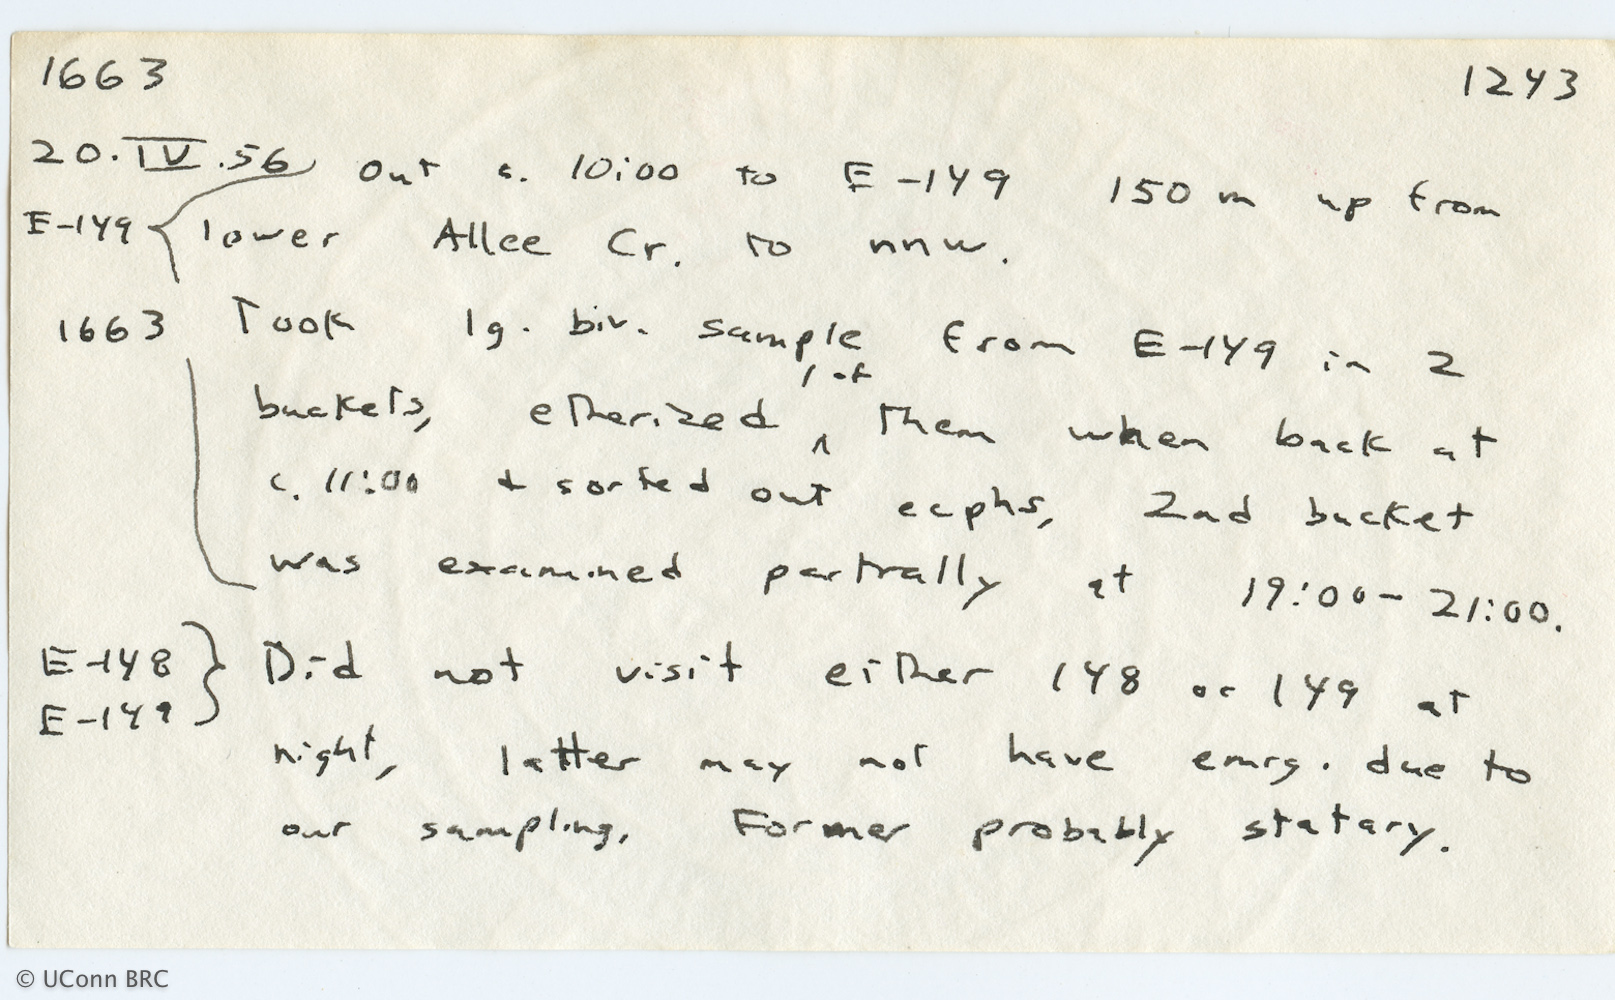 1663 1243
20.IV.56 Out c. 10:00 to E-149 150 m up from
E-149 lower Allee Cr. to nnw.
1663 Took lg. biv. sample from E-149 in 2
1 of
buckets, etherized ^ them when back at
c. 11:00 + sorted out ecphs, 2nd bucket
was examined partially at 19:00-21:00.
E-148 Did not visit either 148 or 149 at
E-149
night, latter may not have emrg. due to
our sampling. Former probably statary.
© UConn BRC